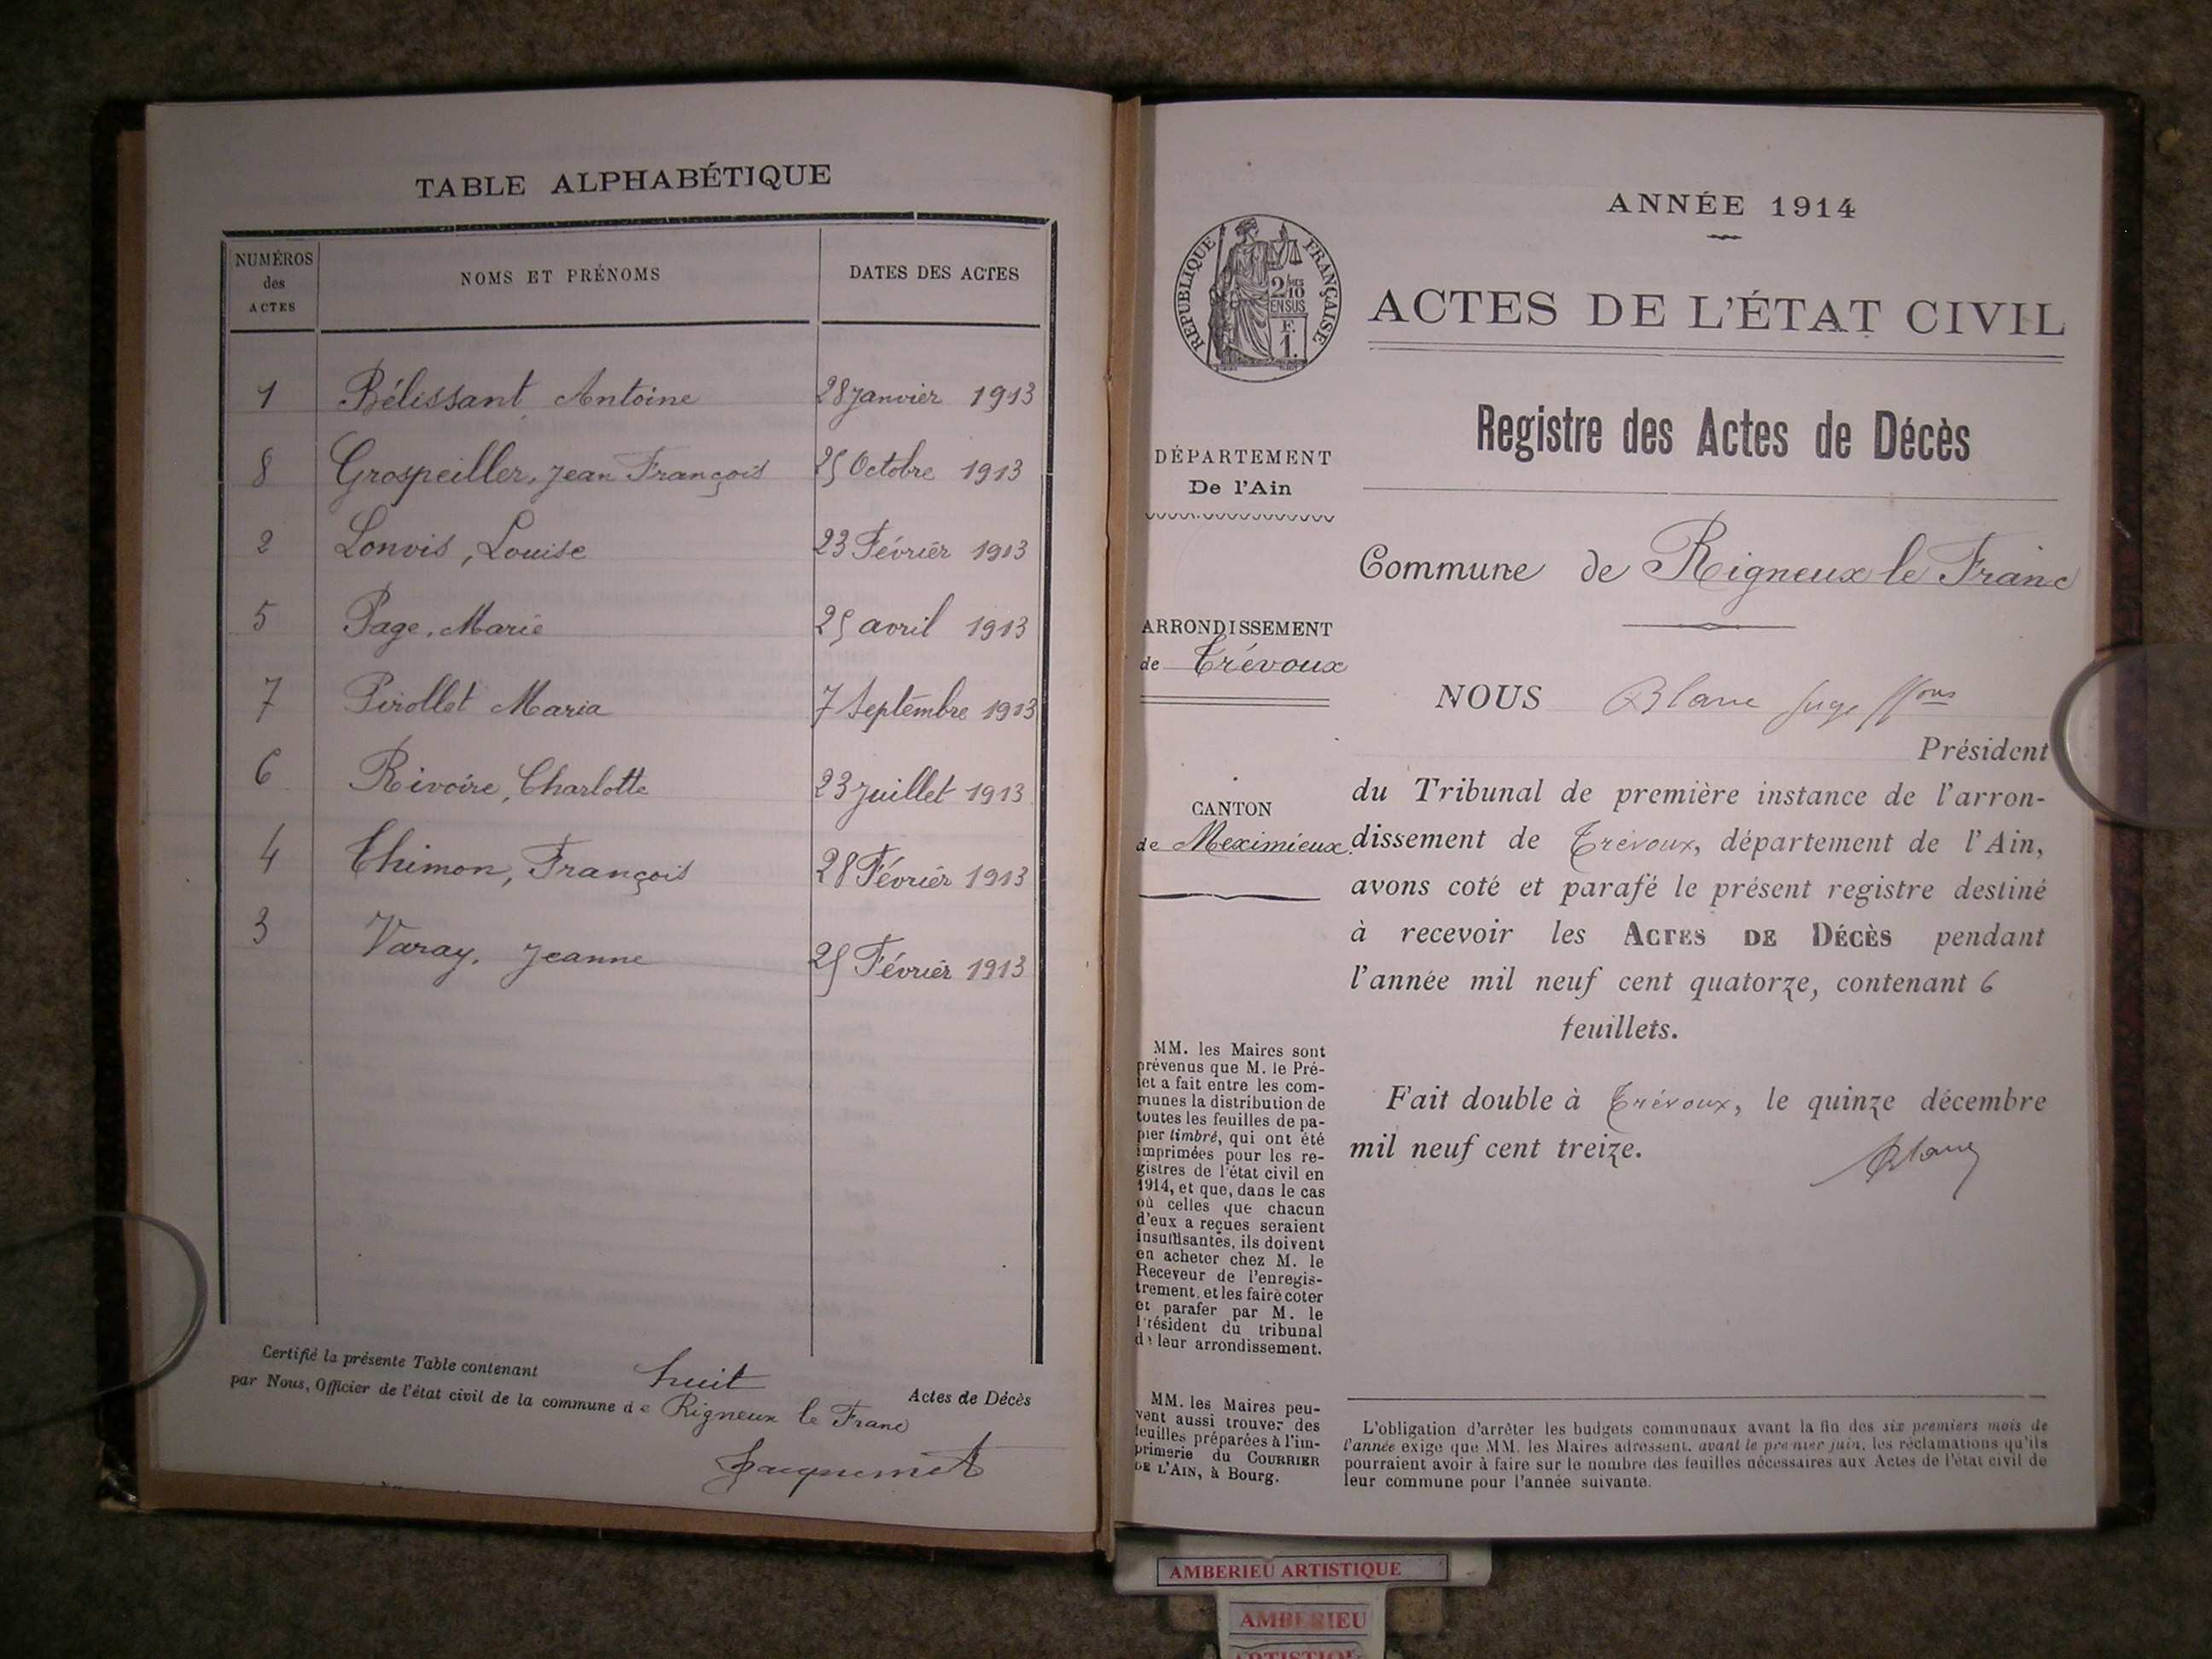 TABLE ALPHABÉTIQUE
NUMÉROS des ACTES
NOMS ET PRÉNOMS
DATES DES ACTES
1 Bélissant Antoine 28 janvier 1913
8 Grospeiller, Jean François 25 Octobre 1913
2 Lonvis, Louise 23 Février 1913
5 Page, Marie 25 avril 1913
7 Pirollet Maria 7 Septembre 1913
6 Rivoire, Charlotte 23 juillet 1913
4 Thimon, François 28 Février 1913
3 Varay, Jeanne 25 Février 1913
Certifié la présente Table contenant huit Actes de Décès
par Nous, Officier de l'état civil de la commune de Rigneux le Franc
ANNÉE 1914
RÉPUBLIQUE FRANÇAISE
2/10 MES
EN SUS
F.
1.
ACTES DE L'ÉTAT CIVIL
Registre des Actes de Décès
DÉPARTEMENT
De l'Ain
Commune de Rigneux le Franc
ARRONDISSEMENT
de Trévoux
NOUS Blanc Juge
Président
CANTON
de Meximieux
du Tribunal de première instance de l'arron-
dissement de Trévoux, département de l'Ain,
avons coté et parafé le présent registre destiné
à recevoir les ACTES DE DÉCÈS pendant
l'année mil neuf cent quatorze, contenant 6
feuillets.
Fait double à Trévoux, le quinze décembre
mil neuf cent treize.
Blanc
MM. les Maires sont
prévenus que M. le Pré-
fet a fait entre les com-
munes la distribution de
toutes les feuilles de pa-
pier timbré, qui ont été
imprimées pour les re-
gistres de l'état civil en
1914, et que, dans le cas
où celles que chacun
d'eux a reçues seraient
insuffisantes, ils doivent
en acheter chez M. le
Receveur de l'enregis-
trement, et les faire coter
et parafer par M. le
Président du tribunal
de leur arrondissement.
MM. les Maires peu-
vent aussi trouver des
feuilles préparées à l'im-
primerie du COURRIER
DE L'AIN, à Bourg.
L'obligation d'arrêter les budgets communaux avant la fin des six premiers mois de
l'année exige que MM. les Maires adressent, avant le premier juin, les réclamations qu'ils
pourraient avoir à faire sur le nombre des feuilles nécessaires aux Actes de l'état civil de
leur commune pour l'année suivante.
AMBERIEU ARTISTIQUE
AMBERIEU
ARTISTIQUE